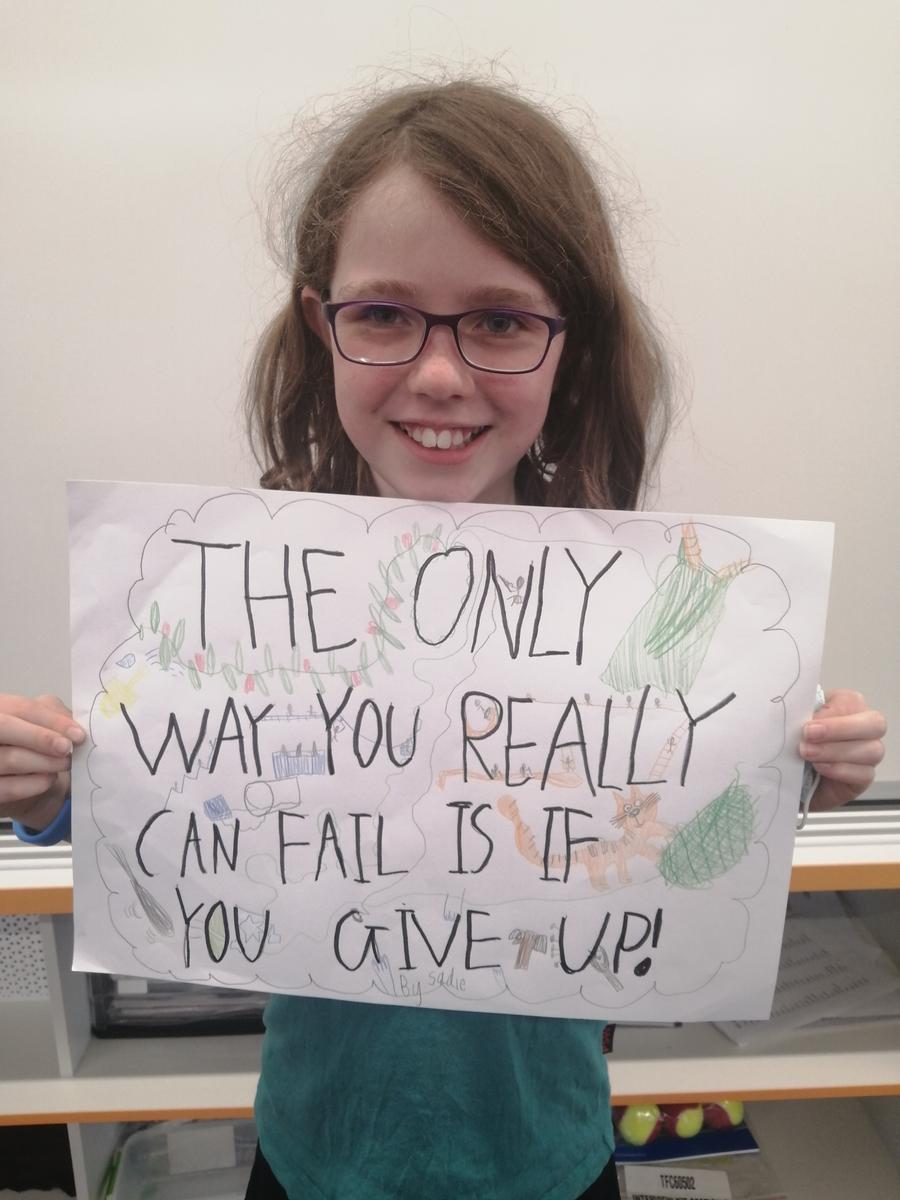 THE ONLY
WAY YOU REALLY
CAN FAIL IS IF
YOU GIVE UP!
By sadie
TFC60502